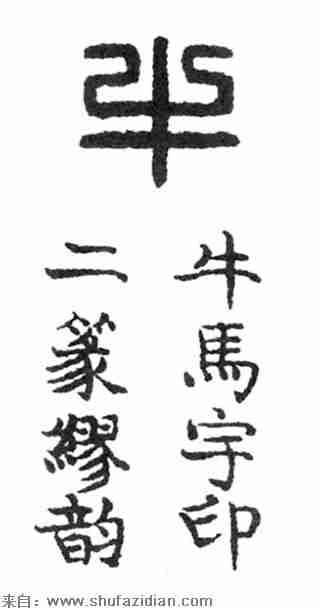 牛
牛馬宇印
二篆繆韵
来自：www.shufazidian.com